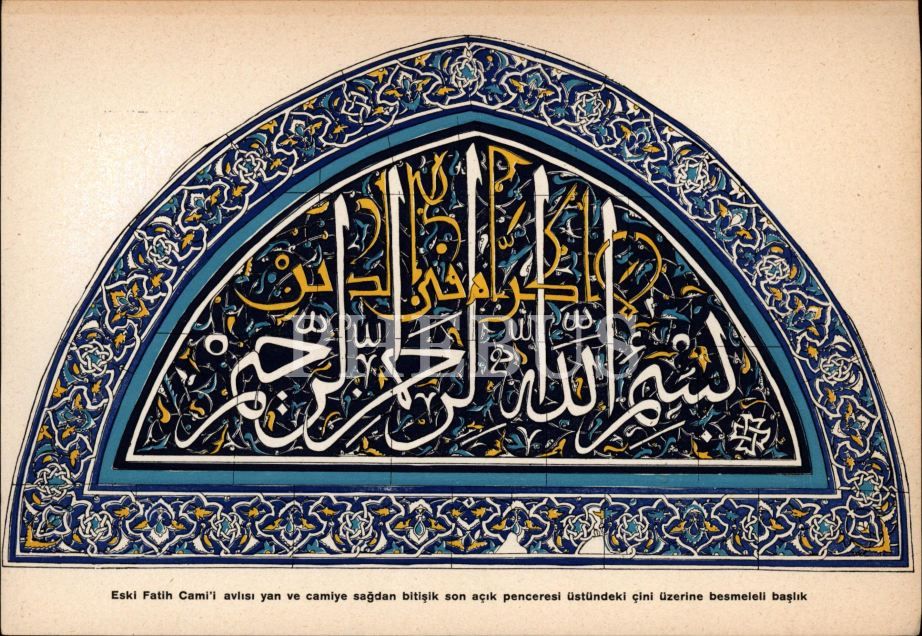 لا اكراه فى الدين
بسم الله الرحمن الرحيم
PHEBUS
Eski Fatih Cami'i avlısı yan ve camiye sağdan bitişik son açık penceresi üstündeki çini üzerine besmeleli başlık